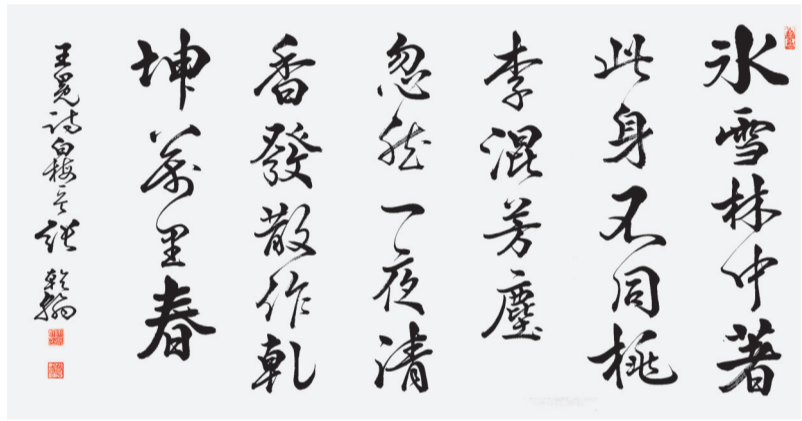 冰雪林中著
此身不同桃
李混芳塵
忽然一夜清
香發散作乾
坤萬里春
王冕詩白梅